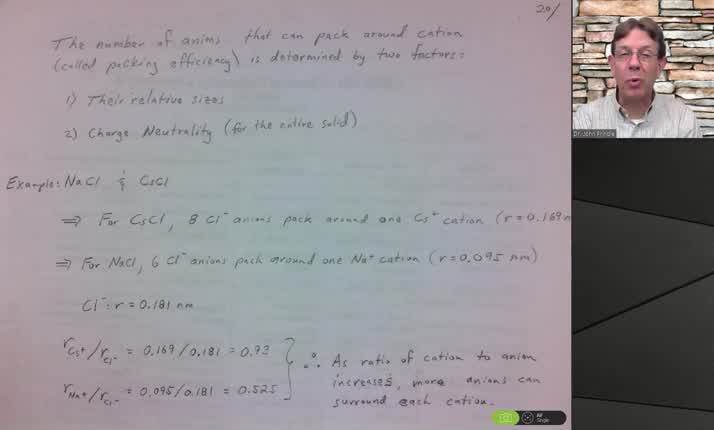 20/
The number of anions that can pack around cation
(called packing efficiency) is determined by two factors:
1) Their relative sizes
2) Charge Neutrality (for the entire solid)
Example: NaCl & CsCl
⇒ For CsCl, 8 Cl⁻ anions pack around one Cs⁺ cation (r = 0.169 n
⇒ For NaCl, 6 Cl⁻ anions pack around one Na⁺ cation (r = 0.095 nm)
Cl⁻: r = 0.181 nm
r Cs⁺/r Cl⁻ = 0.169/0.181 = 0.93
r Na⁺/r Cl⁻ = 0.095/0.181 = 0.525
∴ As ratio of cation to anion
increases, more anions can
surround each cation.
Dr. John Pringle
AF
Single